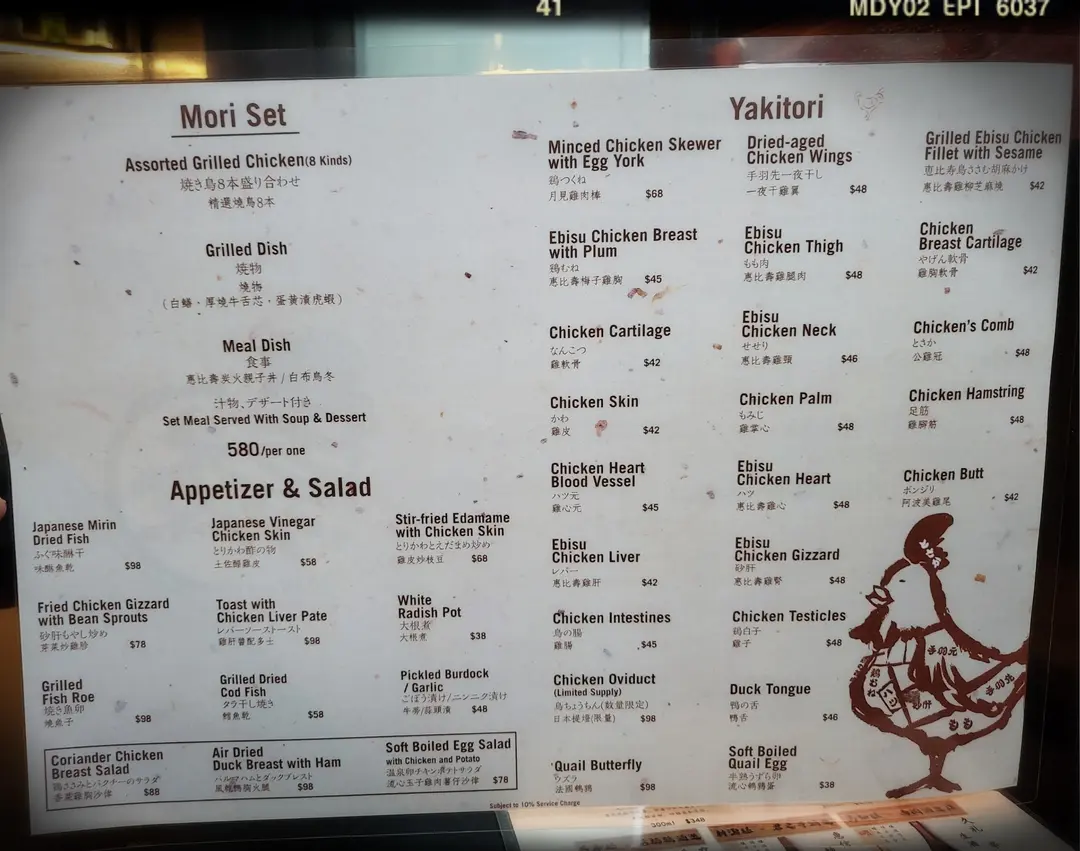 41
MDY02 EPI 6037
Mori Set
Assorted Grilled Chicken(8 Kinds)
焼き鳥8本盛り合わせ
精選燒鳥8本
Grilled Dish
焼物
燒物
(白鱔・厚燒牛舌芯・蛋黃漬虎蝦)
Meal Dish
食事
恵比壽炭火親子丼 / 白布烏冬
汁物、デザート付き
Set Meal Served With Soup & Dessert
580/per one
Appetizer & Salad
Japanese Mirin
Dried Fish
ふぐ味醂干
味醂魚乾 $98
Japanese Vinegar
Chicken Skin
とりかわ酢の物
土佐醋雞皮 $58
Stir-fried Edamame
with Chicken Skin
とりかわとえだまめ炒め
雞皮炒枝豆 $68
Fried Chicken Gizzard
with Bean Sprouts
砂肝もやし炒め
芽菜炒雞腎 $78
Toast with
Chicken Liver Pate
レバーソーストースト
雞肝醬配多士 $98
White
Radish Pot
大根煮
大根煮 $38
Grilled
Fish Roe
焼き魚卵
燒魚子 $98
Grilled Dried
Cod Fish
タラ干し焼き
鱈魚乾 $58
Pickled Burdock
/ Garlic
ごぼう漬け/ニンニク漬け
牛蒡/蒜頭漬 $48
Coriander Chicken
Breast Salad
鶏ささみとパクチーのサラダ
香茜雞胸沙律 $88
Air Dried
Duck Breast with Ham
ハムとダックブレスト
風乾鴨胸火腿 $98
Soft Boiled Egg Salad
with Chicken and Potato
温泉卵チキンポテトサラダ
流心玉子雞肉薯仔沙律 $78
Yakitori
Minced Chicken Skewer
with Egg York
鶏つくね
月見雞肉棒 $68
Dried-aged
Chicken Wings
手羽先一夜干し
一夜干雞翼 $48
Grilled Ebisu Chicken
Fillet with Sesame
恵比寿鳥ささむ胡麻かけ
恵比壽雞柳芝麻燒 $42
Ebisu Chicken Breast
with Plum
鶏むね
恵比壽梅子雞胸 $45
Ebisu
Chicken Thigh
もも肉
恵比壽雞腿肉 $48
Chicken
Breast Cartilage
やげん軟骨
雞胸軟骨 $42
Chicken Cartilage
なんこつ
雞軟骨 $42
Ebisu
Chicken Neck
せせり
恵比壽雞頸 $46
Chicken's Comb
とさか
公雞冠 $48
Chicken Skin
かわ
雞皮 $42
Chicken Palm
もみじ
雞掌心 $48
Chicken Hamstring
足筋
雞腳筋 $48
Chicken Heart
Blood Vessel
ハツ元
雞心元 $45
Ebisu
Chicken Heart
ハツ
恵比壽雞心 $48
Chicken Butt
ボンジリ
阿波美雞尾 $42
Ebisu
Chicken Liver
レバー
恵比壽雞肝 $42
Ebisu
Chicken Gizzard
砂肝
恵比壽雞腎 $48
Chicken Intestines
鳥の腸
雞腸 $45
Chicken Testicles
鶏白子
雞子 $48
Chicken Oviduct
(Limited Supply)
鳥ちょうちん(数量限定)
日本提燈(限量) $98
Duck Tongue
鴨の舌
鴨舌 $46
Quail Butterfly
ウズラ
法國鵪鶉 $98
Soft Boiled
Quail Egg
半熟うずら卵
流心鵪鶉蛋 $38
手羽元
鶏むね
ハツ
砂肝
手羽先
もも
Subject to 10% Service Charge
300ml $348